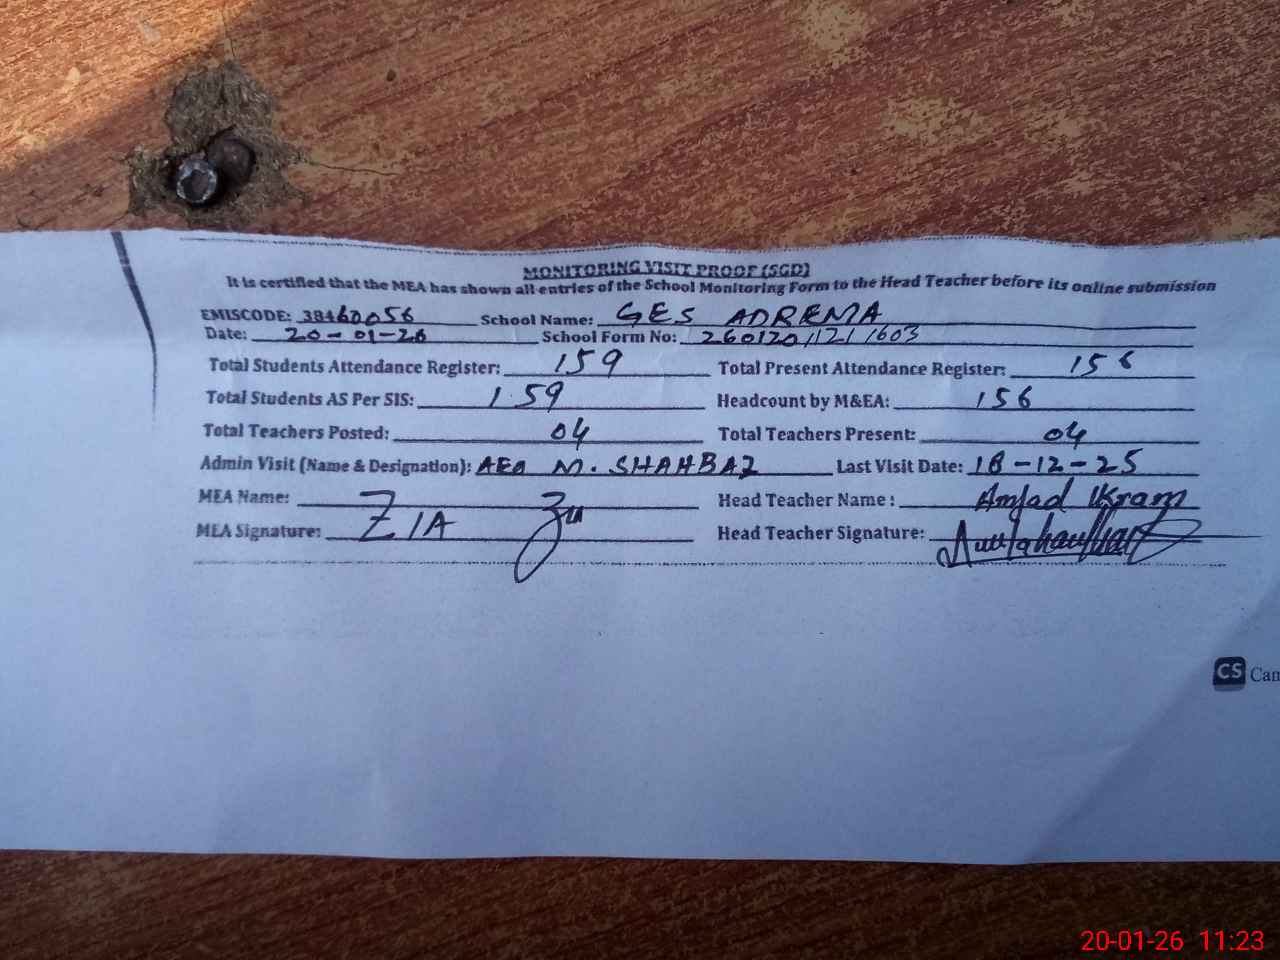 MONITORING VISIT PROOF (SGD)
It is certified that the MEA has shown all entries of the School Monitoring Form to the Head Teacher before its online submission
EMISCODE: 38460056 School Name: GES ADREMA
Date: 20-01-26 School Form No: 26012011211603
Total Students Attendance Register: 159 Total Present Attendance Register: 156
Total Students AS Per SIS: 159 Headcount by M&EA: 156
Total Teachers Posted: 04 Total Teachers Present: 04
Admin Visit (Name & Designation): AEO M. SHAHBAZ Last Visit Date: 18-12-25
MEA Name: Head Teacher Name: Amjad Ikram
MEA Signature: ZIA Head Teacher Signature:
CS Cam
20-01-26 11:23